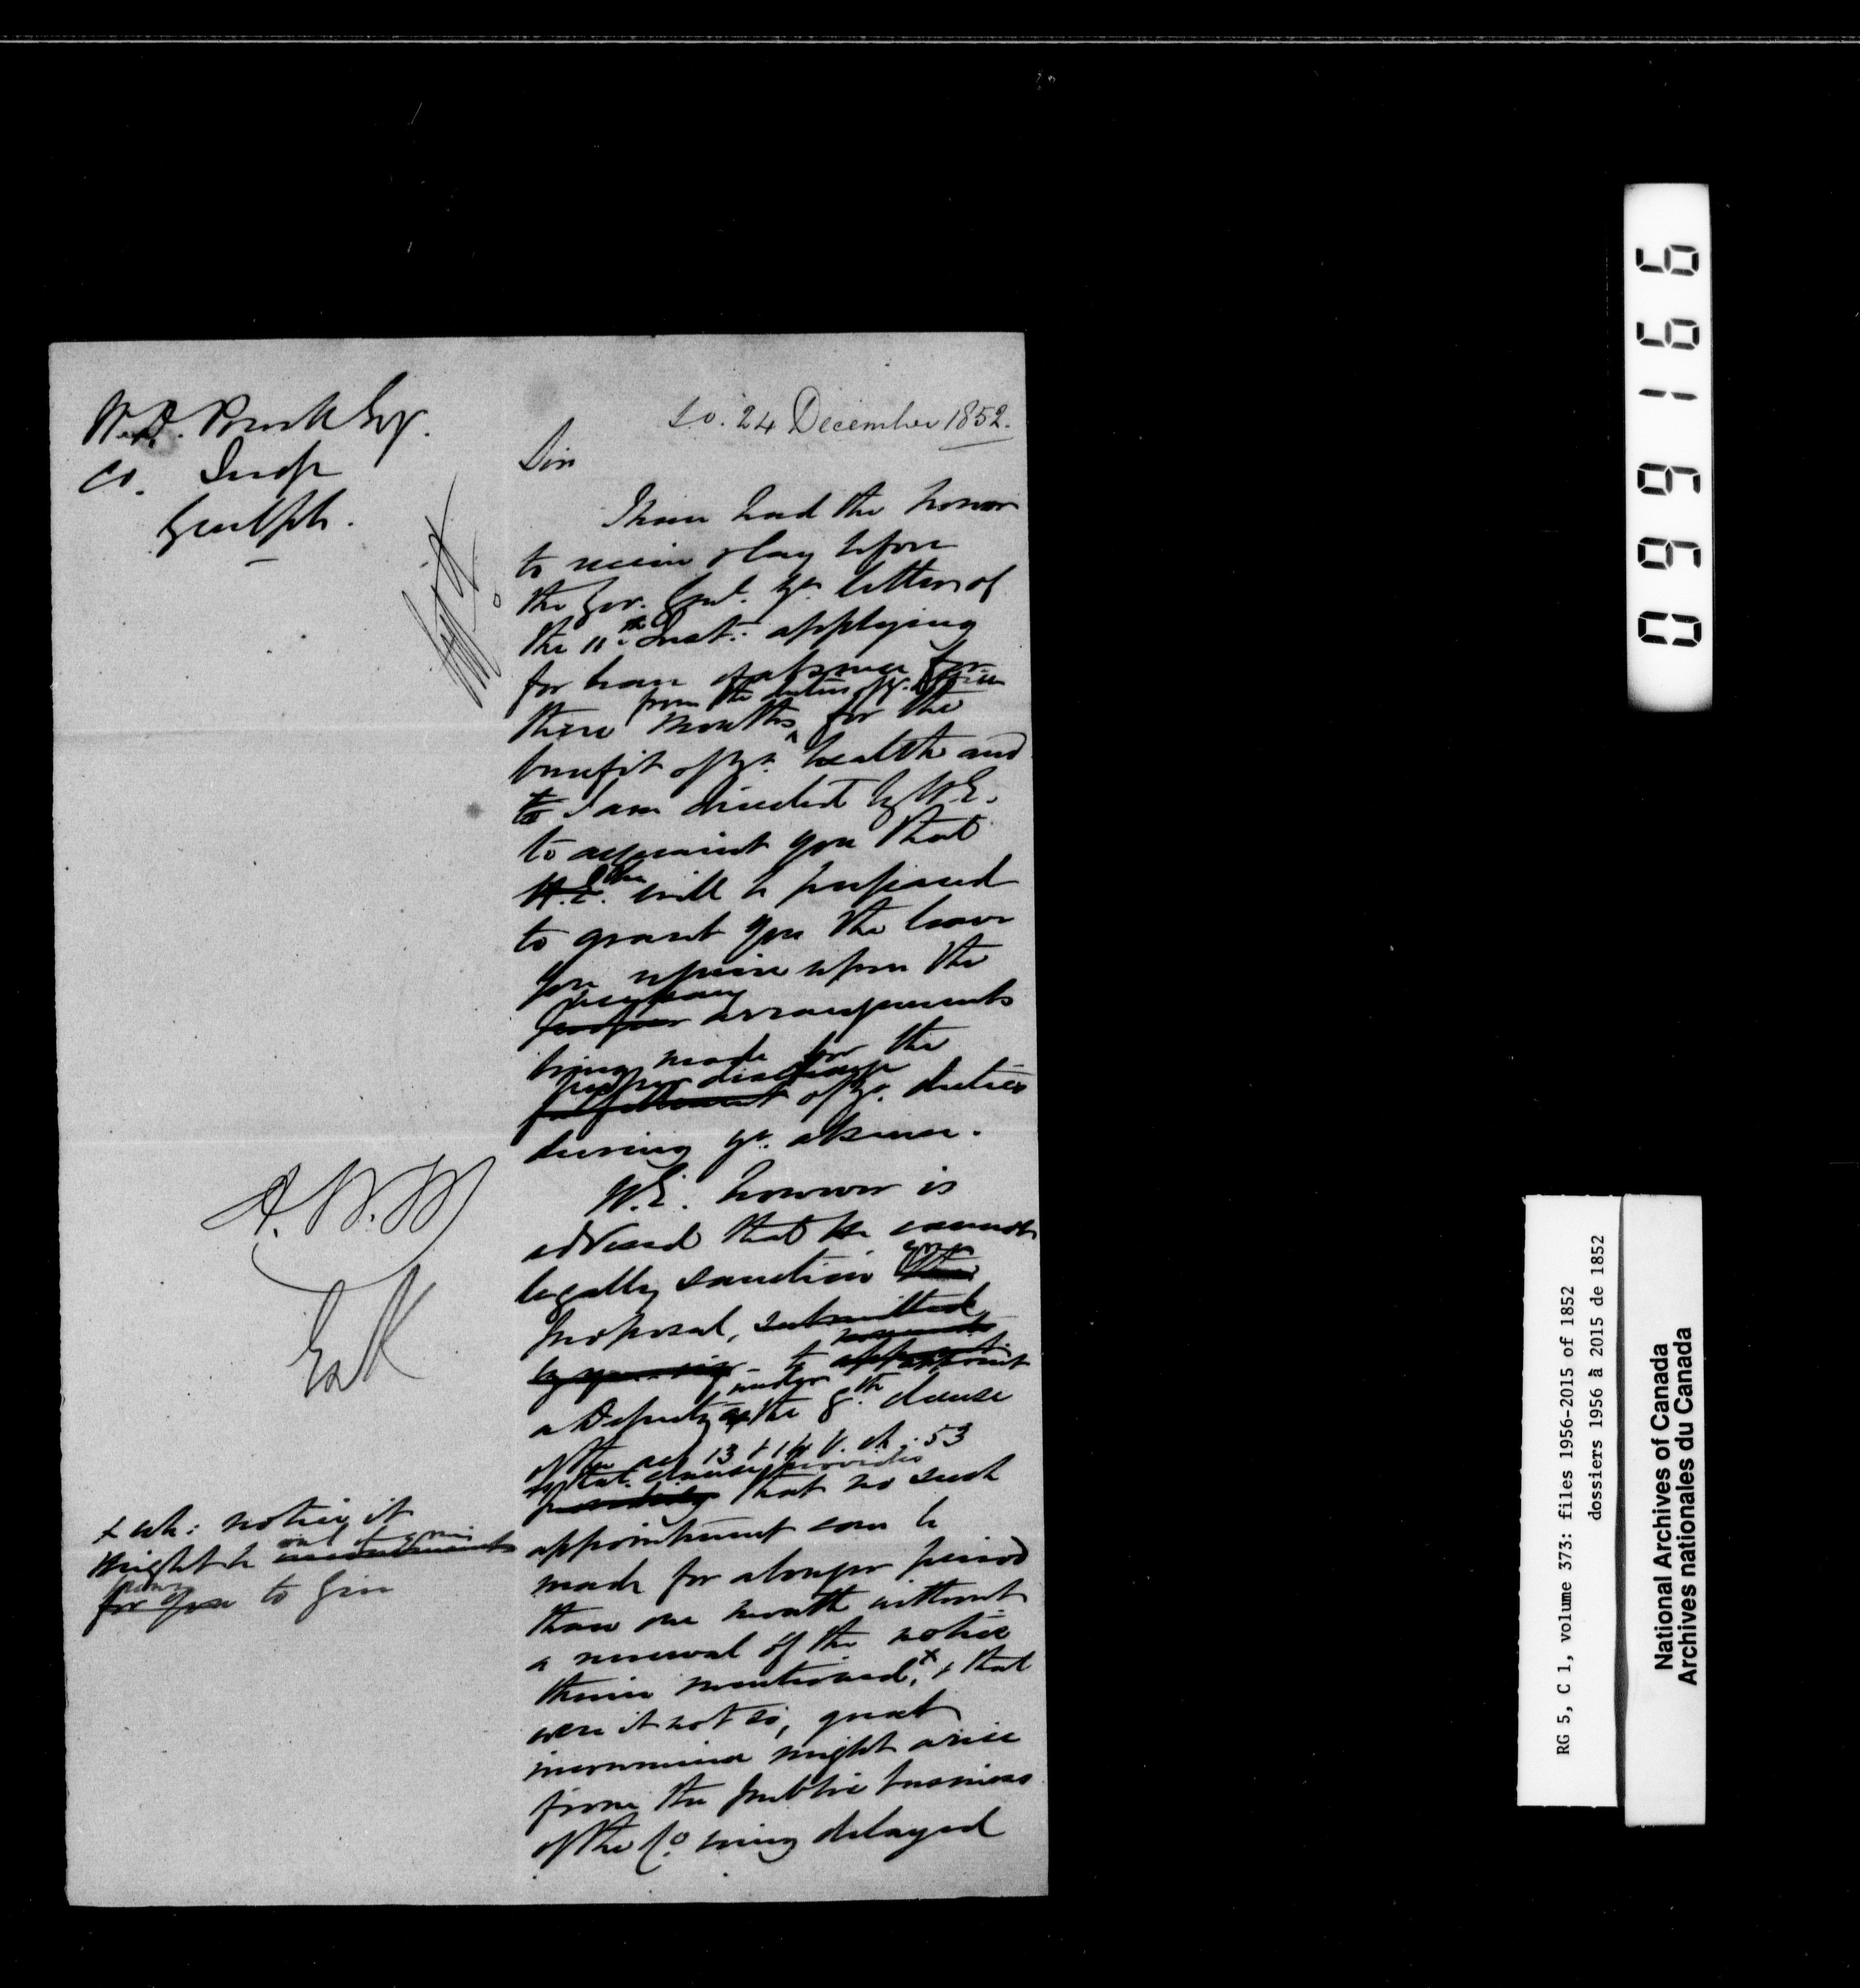 Co. Judge
Guelph.
S.O. 24 December 1852.
Sir
I have had the honor
to receive & lay before
the Gov. Genl. yr. letter of
the 11th Inst. applying
for leave of absence for
from the duties of yr. Office
three months for the
benefit of yr. health and
to I am directed by H.E.
to acquaint you that
H.E. will be prepared
to grant you the leave
you require upon the
necessary
proper arrangements
being made for the
proper discharge
fulfillment of yr. duties
during yr. absence.
H.E. however is
advised that he cannot
legally sanction your
the
proposal, submitted
to appoint
under
a Deputy the 8th clause
of the act 13 & 14 V. ch. 53
as that clause provides
providing that no such
appointment can be
made for a longer period
than one month without
a renewal of the notice
therein mentioned,x & that
were it not so, great
inconvenience might arise
from the public business
of the Co. being delayed
A.N.M
x wh: notice it
might be out of
inconvenient
power
for you to give
0 9 9 1 6 6
RG 5, C 1, volume 373: files 1956-2015 of 1852
dossiers 1956 à 2015 de 1852
National Archives of Canada
Archives nationales du Canada